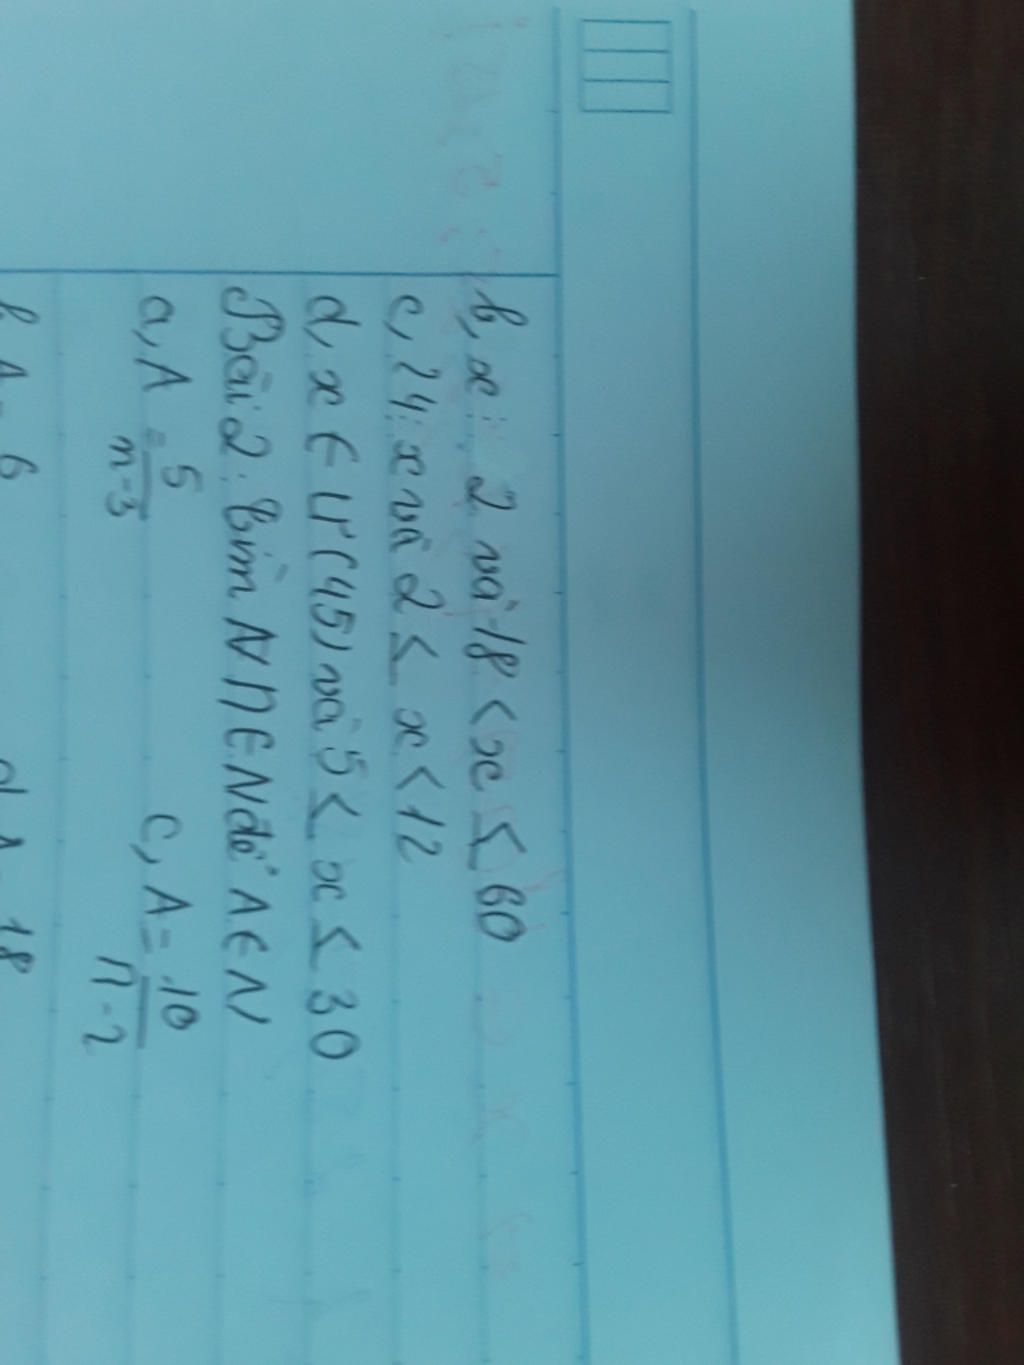 b, x ⋮ 2 và -18 < x ≤ 60
c, 24 ⋮ x và 2 ≤ x < 12
d, x ∈ Ư(45) và 5 ≤ x ≤ 30
Bài 2: Tìm N n ∈ N để A ∈ N
a, A = 5/(n-3) c, A = 10/(n-2)
b, A = 6 d, A = 18